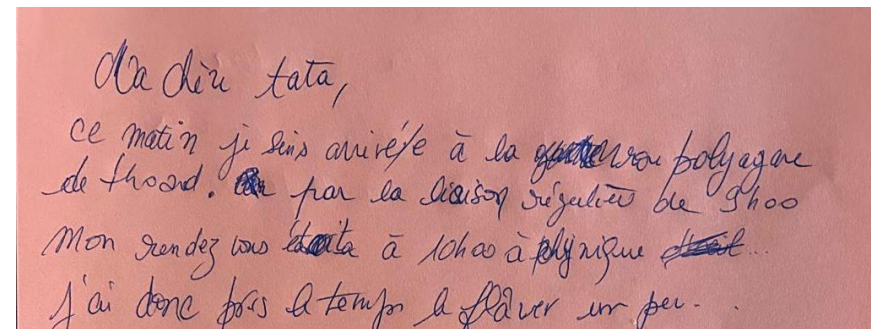 Ma chère tata,
ce matin je suis arrivé/e à la polyagare
de thoard. par la liaison régulière de 9h00
Mon rendez vous à 10h00 à
J'ai donc pris le temps de flâner un peu...